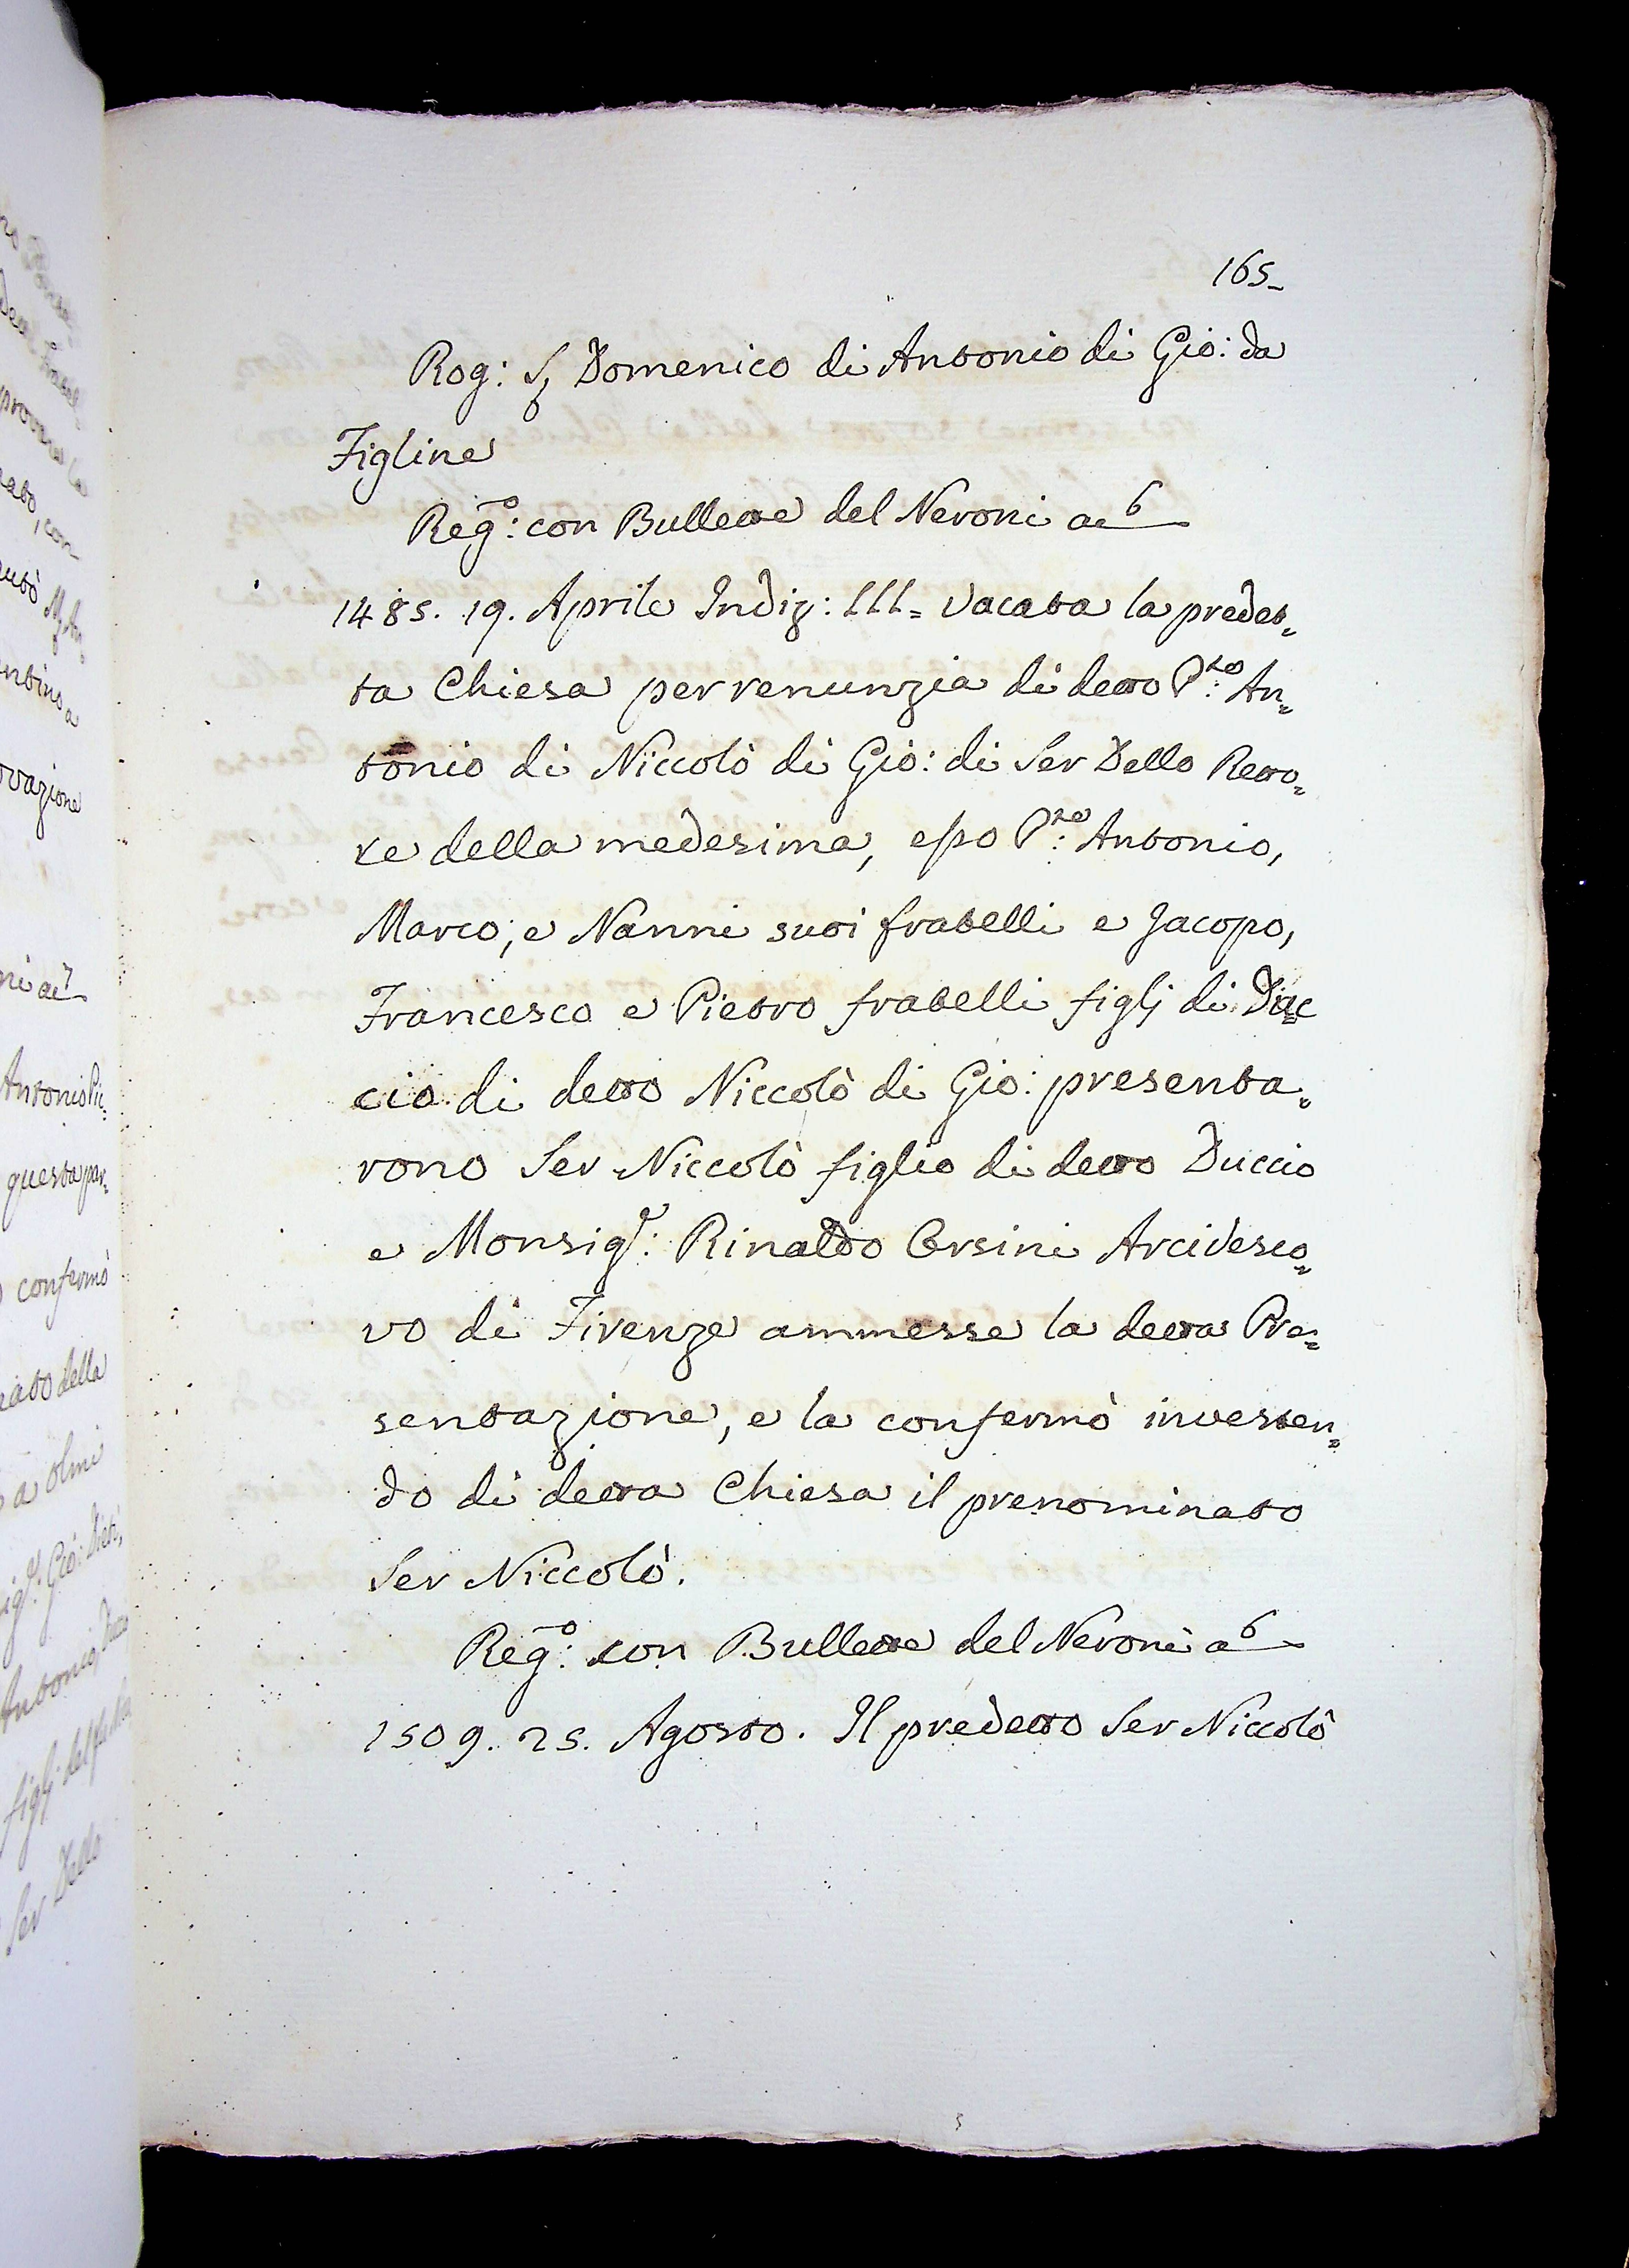 165.
Rog: S. Domenico di Antonio di Gio: da
Figline
Reg.o: con Bullette del Neroni a 6
1485. 19. Aprile Indiz: III= Vacata la predet=
ta Chiesa per renunzia di detto P.re: An=
tonio di Niccolò di Gio: di Ser Dello Retto=
re della medesima, esso P.re: Antonio,
Marco, e Nanni suoi fratelli e Jacopo,
Francesco e Pietro fratelli figlj di Duc
cio di detto Niccolò di Gio: presenta=
rono Ser Niccolò figlio di detto Duccio
e Monsig.r: Rinaldo Orsini Arcivesco=
vo di Firenze ammesse la detta Pre=
sentazione, e la confermò investen=
do di detta Chiesa il prenominato
Ser Niccolò.
Reg.o: con Bullette del Neroni a 6
1509. 25. Agosto. Il predetto Ser Niccolò